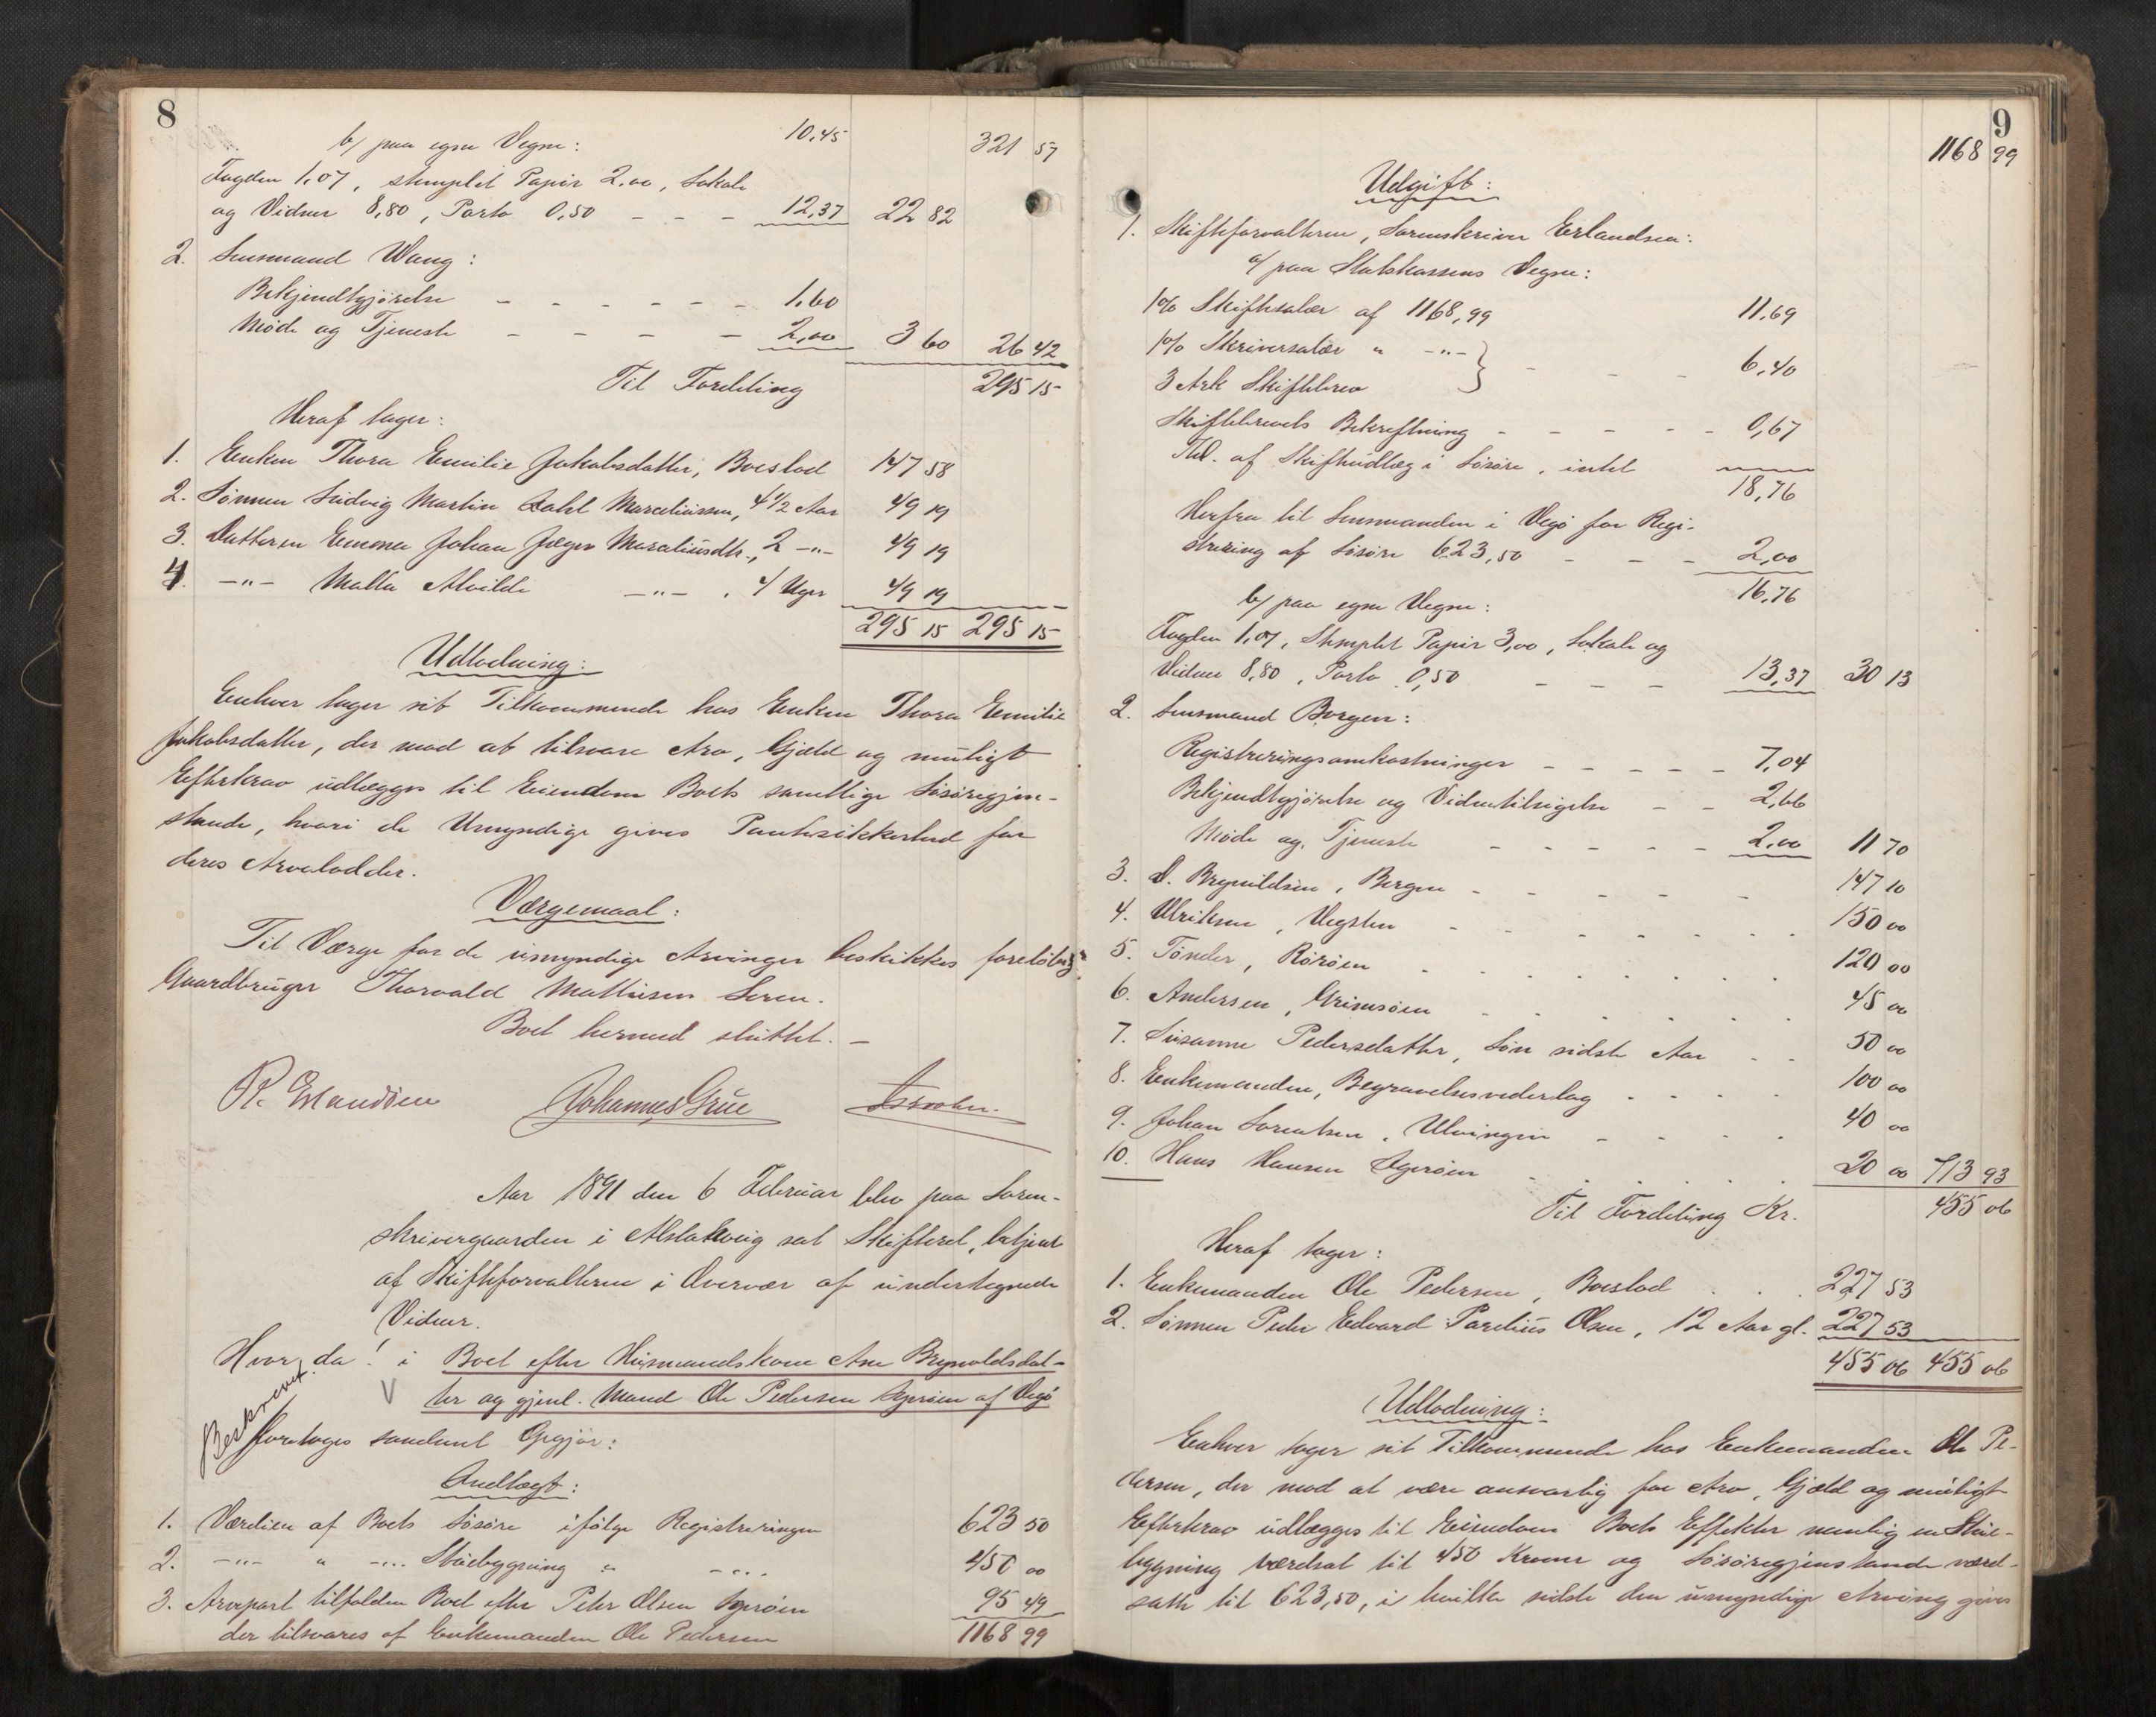 8
b/ paa egne Vegne: 10,45 321 57
Fogden 1,07, stemplet Papir 2,00, Lokale
og Vidner 8,80, Porto 0,50 - - - 12,37 22 82
2. Lensmand Wang:
Bekjendtgjørelse - - - - - - 1,60
Møde og Tjeneste - - - - 2,00 3 60 26 42
Til Fordeling 295 15
Heraf tager:
1. Enken Thora Emilie Jakobsdatter, Boeslod 147 58
2. Sønnen Ludvig Martin Dahl Marceliussen, 4 1/2 Aar 49 19
3. Datteren Emma Johan Jæger Marceliusdtr., 2 -"- 49 19
4. -"- Matha Alvilde -"- , 4 Uger 49 19
295 15 295 15
Udlodning:
Enhver tager sit Tilkommende hos Enken Thora Emilie
Jakobsdatter, der mod at tilsvare Arv, Gjæld og muligt
Efterkrav udlægges til Eiendom Boets samtlige Løsøregjen-
stande, hvori de Umyndige gives Pantesikkerhed for
deres Arvelodder.
Værgemaal:
Til Værge for de umyndige Arvinger beskikkes foreløbig
Gaardbruger Thorvald Mathisen Seren.
Boet hermed sluttet. -
R. Erlandsen Johannes Grue
Aar 1891 den 6 Februar blev paa Soren-
skrivergaarden i Alstahoug sat Skifteret, betjent
af Skifteforvalteren i Overvær af undertegnede
Vidner.
Hvor da! i Boet efter Husmandskone Ane Brynoldsdat-
ter og gjenl. Mand Ole Pedersen Igerøen af Vegø
Beskrevet.
foretoges saadant Opgjør:
Indtægt:
1. Værdien af Boets Løsøre ifølge Registreringen 623 50
2. -"- " -"- Stuebygning " -"- 450 00
3. Arvepart tilfalden Boet efter Peter Olsen Igerøen 95 49
der tilsvares af Enkemanden Ole Pedersen 1168 99
9
1168 99
Udgift:
1. Skifteforvalteren, Sorenskriver Erlandsen:
a/ paa Statskassens Vegne:
1% Skiftesalær af 1168,99 11,69
1% Skriversalær " -"- }
3 Ark Skiftebrev } - - - 6,40
Skiftebrevets Bekreftning - - - - - 0,67
Thl. af Skifteudlæg i Løsøre, intet
18,76
Herfra til Lensmanden i Vegø for Regi-
strering af Løsøre 623,50 - - - 2,00
16,76
b/ paa egne Vegne:
Fogden 1,07, Stemplet Papir 3,00, Lokale og
Vidner 8,80, Porto 0,50 - - - 13,37 30 13
2. Lensmand Borgen:
Registreringsomkostninger - - - - - 7,04
Bekjendtgjørelse og Vidnetilsigelse - - 2,66
Møde og Tjeneste - - - - - 2,00 11 70
3. D. Brynildsen, Bergen - - - - - - 147 10
4. Ulriksen, Vegsten - - - - - - 150 00
5. Tønder, Rørøen - - - - - - 120 00
6. Andersen, Grimsøen - - - - - - 45 00
7. Susanne Pedersdatter, Løn sidste Aar - - 50 00
8. Enkemanden, Begravelsesvederlag - - - - 100 00
9. Johan Lorentsen, Ulvingen - - - - 40 00
10. Hans Hansen Igerøen - - - - - 20 00 713 93
Til Fordeling Kr. 455 06
Heraf tager:
1. Enkemanden Ole Pedersen, Boeslod . . . 227 53
2. Sønnen Peder Edvard Parelius Olsen, 12 Aar gl. 227 53
455 06 455 06
Udlodning:
Enhver tager sit Tilkommende hos Enkemanden Ole Pe-
dersen, der mod at være ansvarlig for Arv, Gjæld og muligt
Efterkrav udlægges til Eiendom Boets Effekter nemlig en Stue-
bygning værdsat til 450 Kroner og Løsøregjenstande værd-
satte til 623,50, i hvilke sidste den umyndige Arving gives